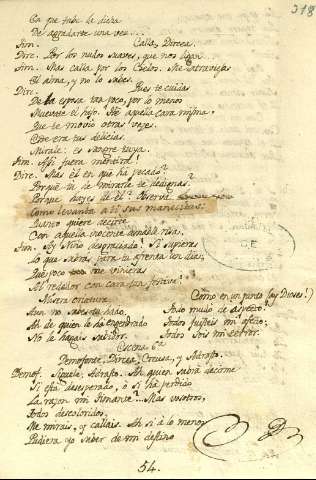 318
Ya que tube la dicha
De agradarte una vez...
Tim. Calla, Dircea.
Dirc. Por los nudos suaves, que nos ligan
Tim. Mas calla por los Cielos. Me atraviesas
El alma, y no lo sabes.
Dirc. Pues te cuidas
De la esposa tan poco, por lo menos
Muevate el hijo. Es aquella cara misma,
Que te movió otras vezes.
Este era tus delicias.
Mirale: es sangre tuya.
Tim. Asi fuera mentira!
Dirc. Mas él en qué ha pecado?
Porqué tu de mirarle te dedignas?
Porque huyes de él? Observa
Como levanta a ti sus manecitas:
Quanto quiere decirte
Con aquella inocente amable risa!
Tim. Ay Niño desgraciado! Si supieras
lo que sabrás para tu afrenta un dia;
Que poco me vinieras
Al rededor con cara tan festiva!
Misera criatura
Aun no sabes tu hado.
Ah de quien te ha engendrado
No le hagais sabidor.
Como en un punto (ay Dioses!)
Todo mudó de aspecto!
Todos fuisteis mi afecto;
Todos sois mi terror.
Escena 5ª
Demofonte, Dircea, Creusa, y Adrasto.
Demof. Siguele, Adrasto. Ah quien sabrá decirme
Si está desesperado, ó si ha perdido
La razon mi Timante?... Mas vosotros,
Todos descoloridos,
Me mirais, y callais. Ah si á lo menos
Pudiera yo saber de mi destino
DE
54.